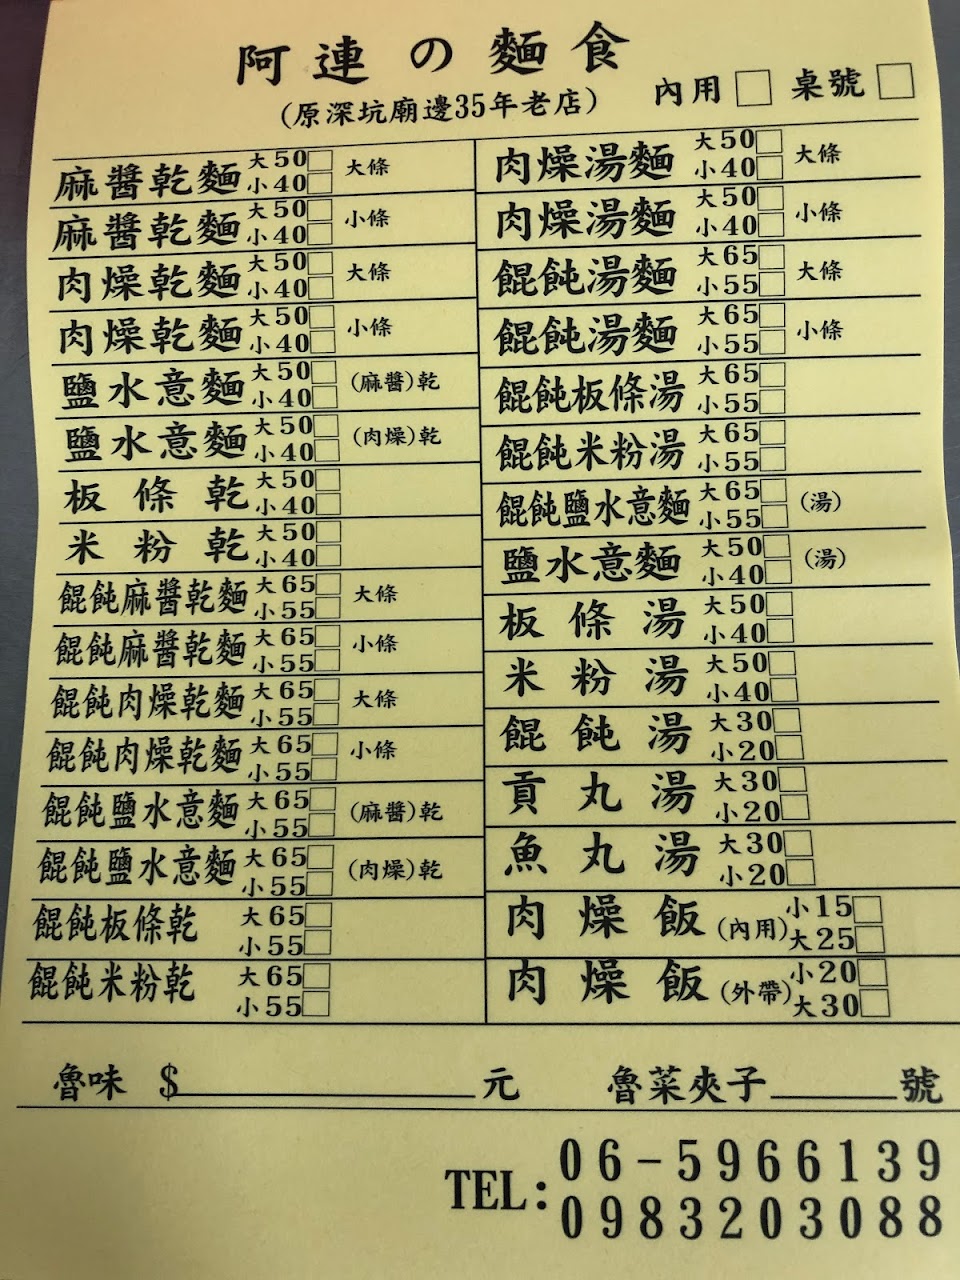 阿連の麵食
(原深坑廟邊35年老店)
內用□ 桌號□
麻醬乾麵 大50□ 小40□ 大條
麻醬乾麵 大50□ 小40□ 小條
肉燥乾麵 大50□ 小40□ 大條
肉燥乾麵 大50□ 小40□ 小條
鹽水意麵 大50□ 小40□ (麻醬)乾
鹽水意麵 大50□ 小40□ (肉燥)乾
板條乾 大50□ 小40□
米粉乾 大50□ 小40□
餛飩麻醬乾麵 大65□ 小55□ 大條
餛飩麻醬乾麵 大65□ 小55□ 小條
餛飩肉燥乾麵 大65□ 小55□ 大條
餛飩肉燥乾麵 大65□ 小55□ 小條
餛飩鹽水意麵 大65□ 小55□ (麻醬)乾
餛飩鹽水意麵 大65□ 小55□ (肉燥)乾
餛飩板條乾 大65□ 小55□
餛飩米粉乾 大65□ 小55□
肉燥湯麵 大50□ 小40□ 大條
肉燥湯麵 大50□ 小40□ 小條
餛飩湯麵 大65□ 小55□ 大條
餛飩湯麵 大65□ 小55□ 小條
餛飩板條湯 大65□ 小55□
餛飩米粉湯 大65□ 小55□
餛飩鹽水意麵 大65□ 小55□ (湯)
鹽水意麵 大50□ 小40□ (湯)
板條湯 大50□ 小40□
米粉湯 大50□ 小40□
餛飩湯 大30□ 小20□
貢丸湯 大30□ 小20□
魚丸湯 大30□ 小20□
肉燥飯(內用) 小15□ 大25□
肉燥飯(外帶) 小20□ 大30□
魯味 $______元 魯菜夾子______號
TEL: 06-5966139
0983203088